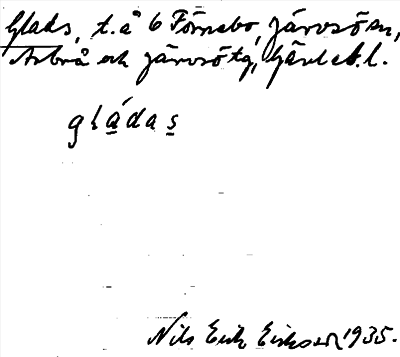 Glads, t. å 6 Förnebo, Järvsö sn,
Arbrå och Järvsö tg, Gävleb. l.
gládas
Nils Erik Eriksson 1935.